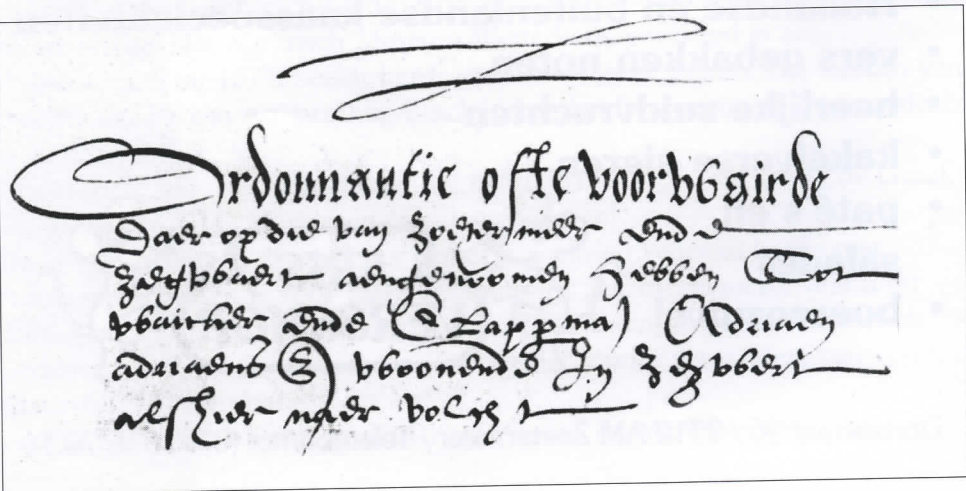 Ordonnantie ofte voorwairde
Daer op die van Zoetermeer ende
Zegwaert aengenomen hebben Tot
waicker ende Clappma Adriaen
adriaens Z woonende In Zegwert
als hier naer volcht